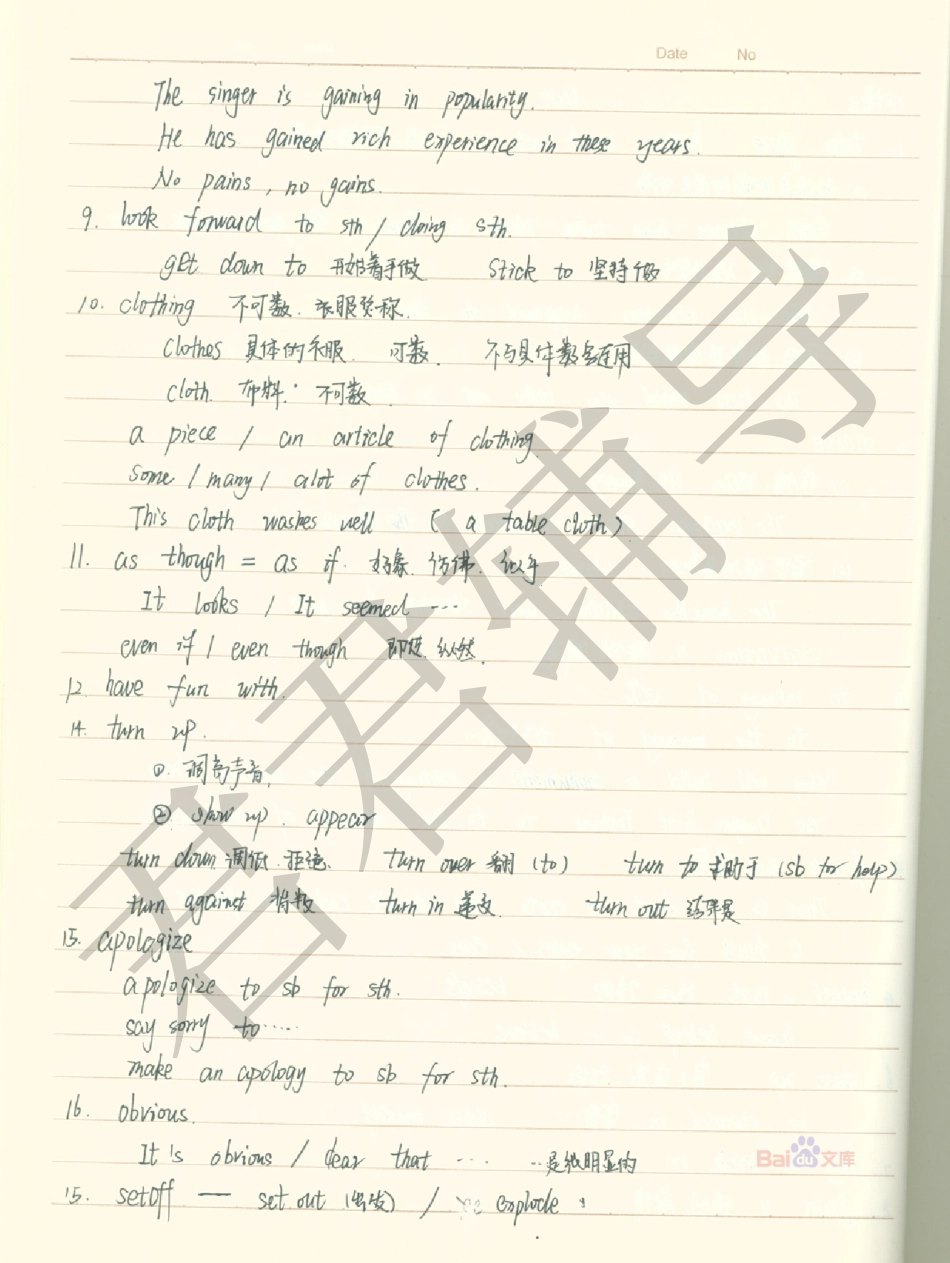 Date No
The singer is gaining in popularity.
He has gained rich experience in these years.
No pains, no gains.
9. look forward to sth / doing sth.
get down to 开始着手做 stick to 坚持做
10. clothing 不可数. 衣服总称.
clothes 具体的衣服. 可数. 不与具体数字连用
cloth. 布料. 不可数.
a piece / an article of clothing.
some / many / alot of clothes.
This cloth washes well ( a table cloth )
11. as though = as if. 好象. 仿佛. 似乎
It looks / It seemed ...
even if / even though 即使. 纵然.
12. have fun with.
14. turn up.
①. 调高声音.
②. show up. appear
turn down 调低. 拒绝. turn over 翻 (to) turn to 求助于 (sb for help)
turn against 背叛 turn in 递交. turn out 结果是
15. apologize
apologize to sb for sth.
say sorry to .....
make an apology to sb for sth.
16. obvious.
It's obvious / clear that ... ...是很明显的
15. setoff — set out (出发) / explode
君君辅导
Baidu文库